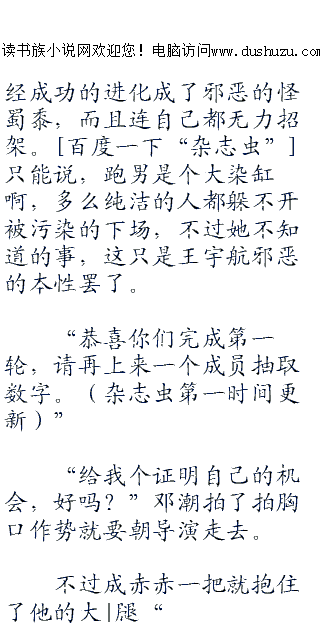 读书族小说网欢迎您！电脑访问www.dushuzu.com
经成功的进化成了邪恶的怪
蜀黍，而且连自己都无力招
架。[百度一下“杂志虫”]
只能说，跑男是个大染缸
啊，多么纯洁的人都躲不开
被污染的下场，不过她不知
道的事，这只是王宇航邪恶
的本性罢了。
“恭喜你们完成第一
轮，请再上来一个成员抽取
数字。（杂志虫第一时间更
新）”
“给我个证明自己的机
会，好吗？”邓潮拍了拍胸
口作势就要朝导演走去。
不过成赤赤一把就抱住
了他的大|腿“